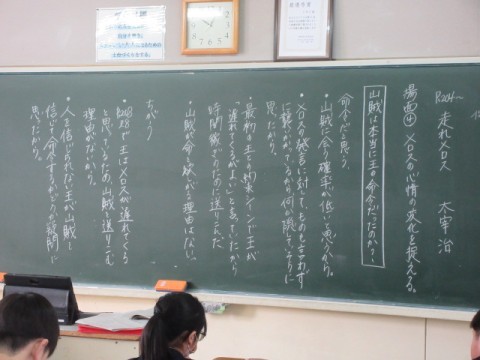 P204〜
走れメロス　太宰 治
場面④ メロスの心情の変化を捉える。
山賊は本当に王の命令だったのか?
命令だと思う。
・山賊に会う確率が低いと思うから。
・メロスの発言に対して、ものも言わず
に襲いかかるから何か隠してそうに
思ったから。
・最初、王との約束シーンで王が
「遅れてくるがよい」と言っていたから
時間稼ぎのために送りこんだ
・山賊が命を放がる理由はない。
ちがう
で王はメロスが遅れてくる
と思っているため、山賊を送りこむ
理由がないから。
・人を信じられない王が山賊を
信じて命令するかどうか疑問に
思ったから。